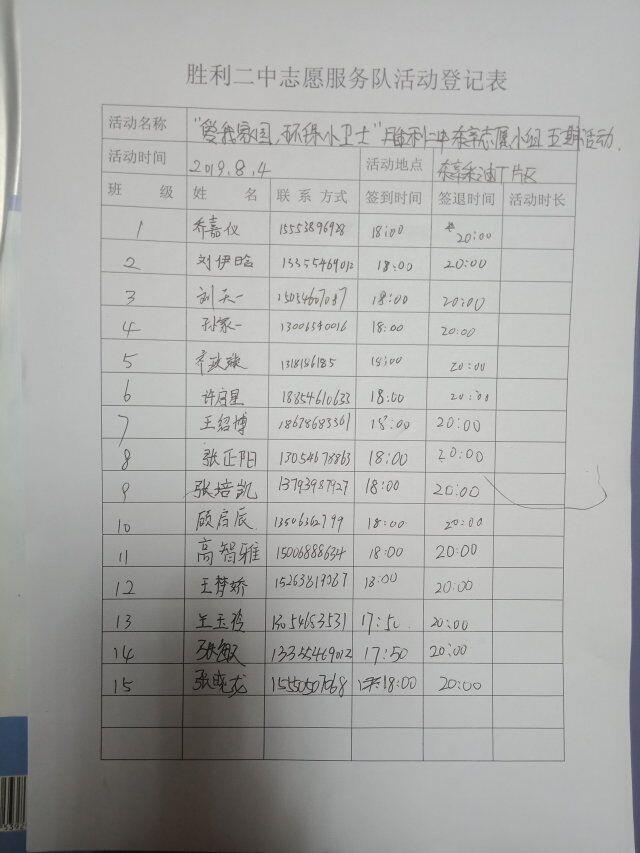 胜利二中志愿服务队活动登记表
活动名称 "爱我家园,环保小卫士"胜利二中东辛志愿小组五期活动
活动时间 2019.8.4 活动地点 东辛采油厂片区
班 级 姓 名 联系方式 签到时间 签退时间 活动时长
1 乔嘉仪 15553896928 18:00 20:00
2 刘伊晗 13355469012 18:00 20:00
3 刘天一 15054607087 18:00 20:00
4 孙家一 13006540016 18:00 20:00
5 1318186185 18:00 20:00
6 许启星 18854610633 18:00 20:00
7 王绍博 18678683361 18:00 20:00
8 张正阳 13054678863 18:00 20:00
9 张培凯 13793987927 18:00 20:00
10 顾启辰 13506362799 18:00 20:00
11 高智雅 15006888634 18:00 20:00
12 王梦娇 15263819267 18:00 20:00
13 王玉玲 13054653531 17:50 20:00
14 张敏 13355469012 17:50 20:00
15 张晓龙 15550507068 18:00 20:00